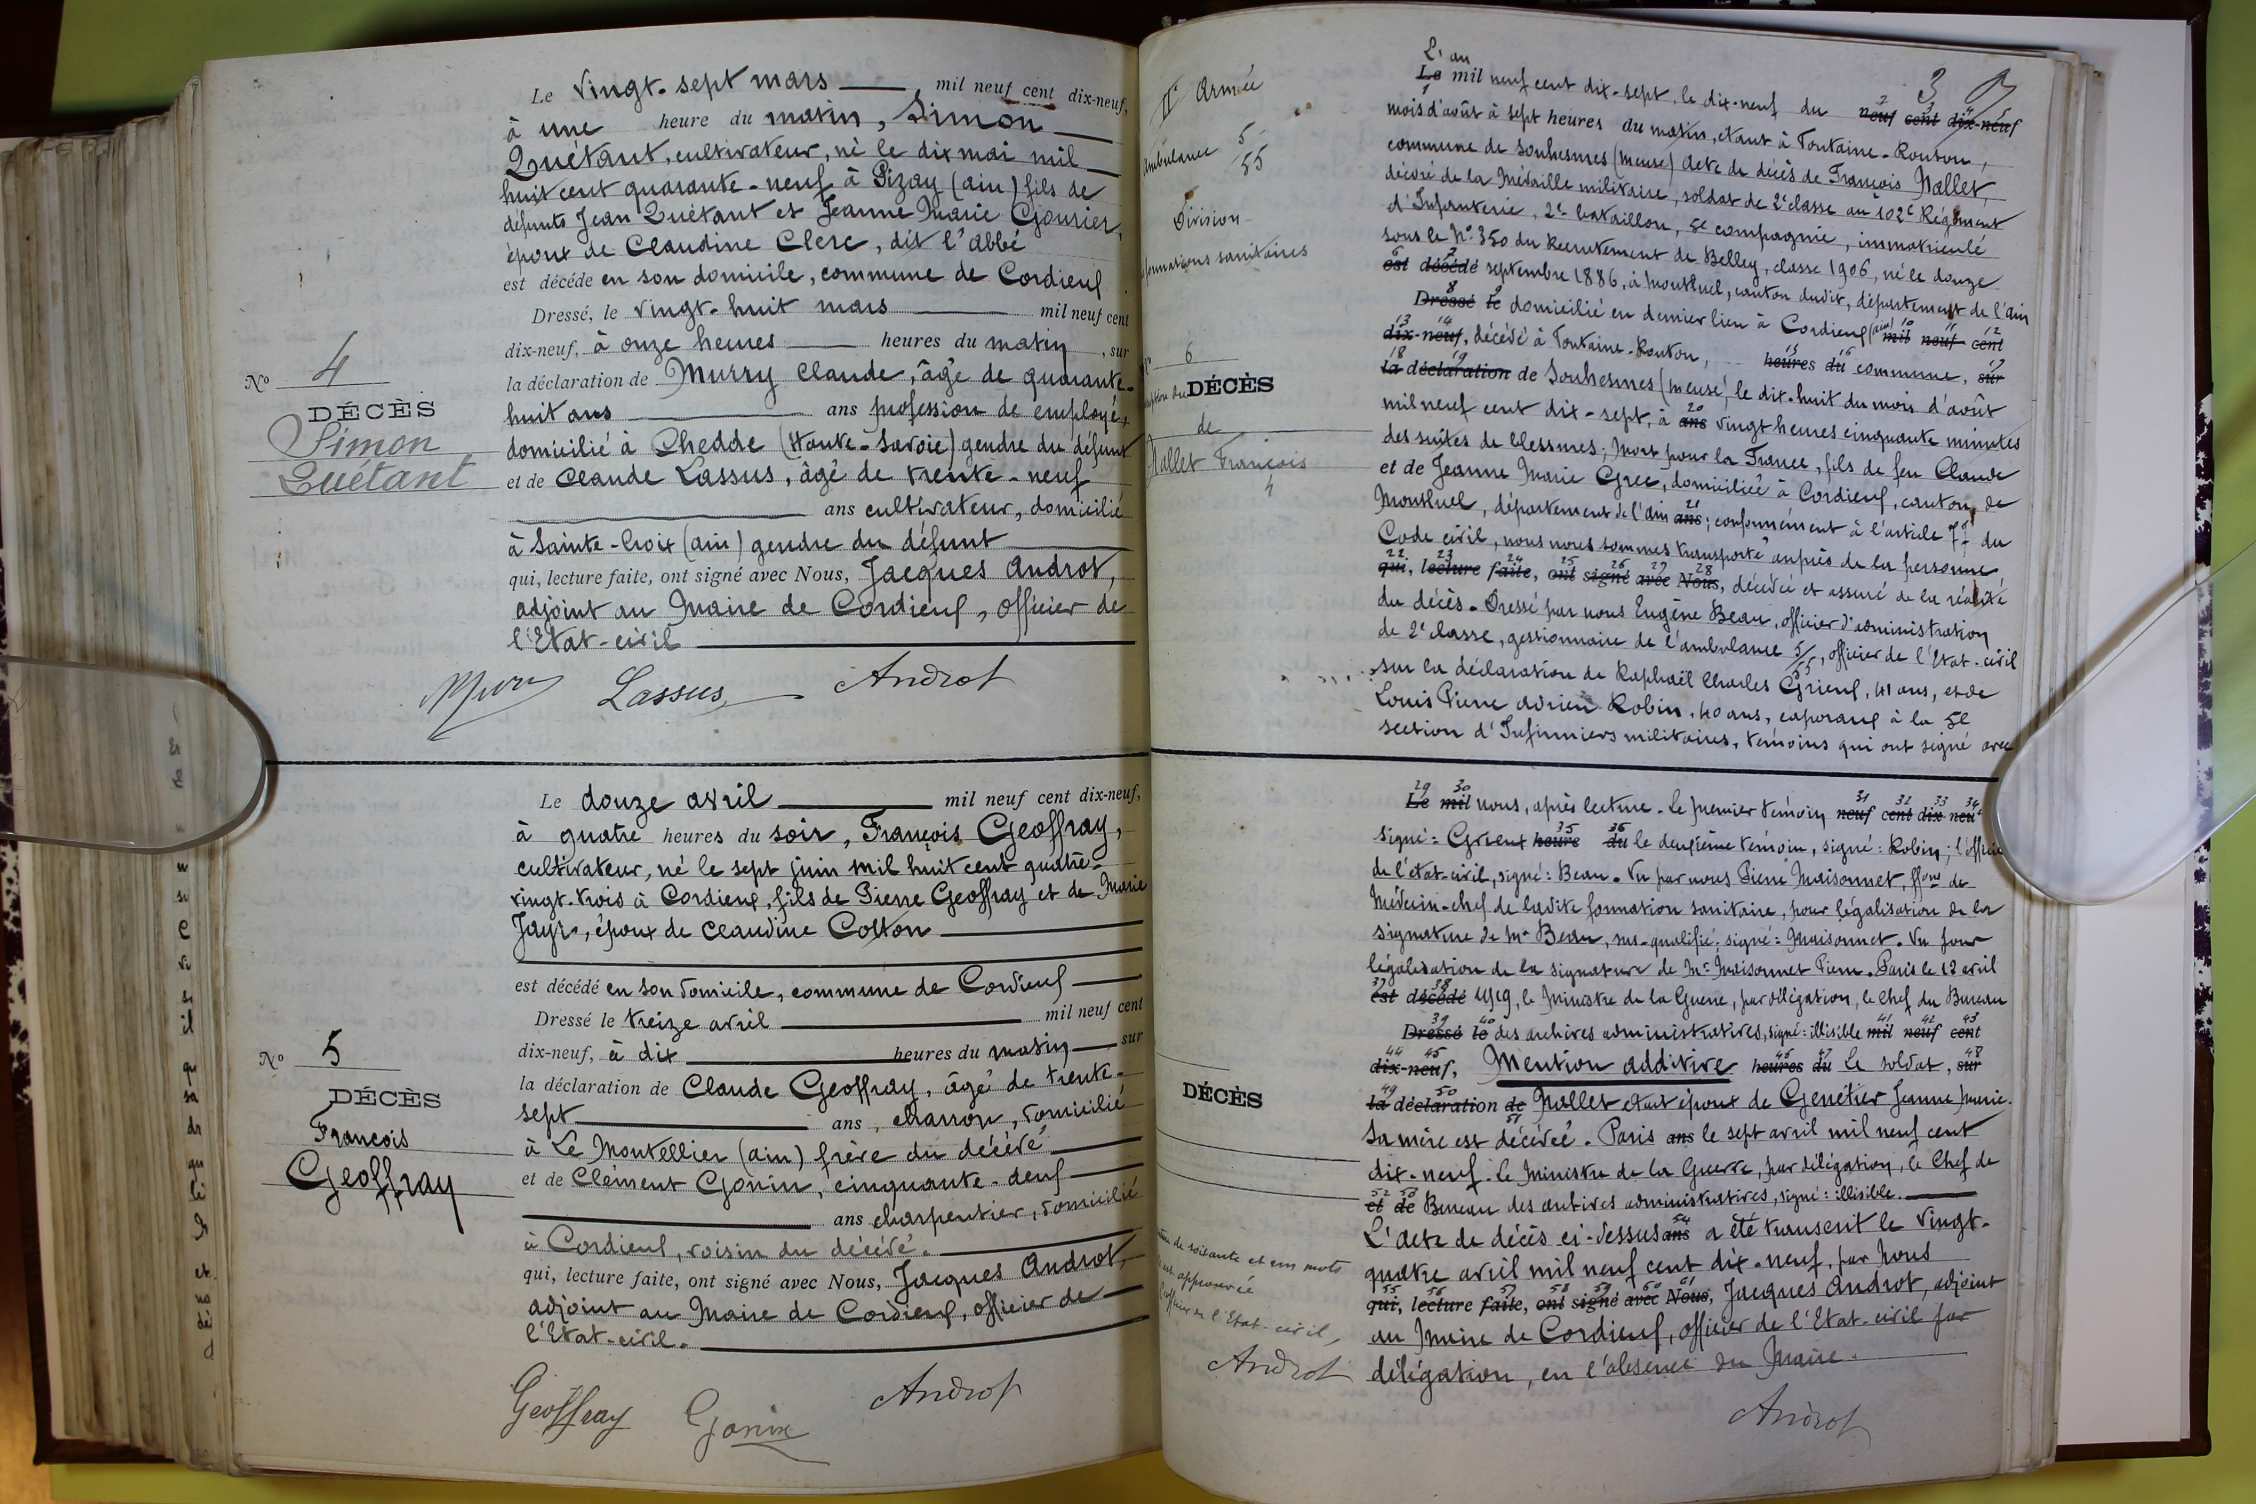 Le vingt-sept mars mil neuf cent dix-neuf,
à une heure du matin, Simon
Quétant, cultivateur, né le dix mai mil
huit cent quarante-neuf à Pizay (ain) fils de
défunts Jean Quétant et Jeanne Marie Gourier,
époux de Claudine Clerc, dit l'abbé
est décédé en son domicile, commune de Cordieux
Dressé, le vingt-huit mars mil neuf cent
dix-neuf, à onze heures heures du matin, sur
la déclaration de Murry Claude, âgé de quarante-
huit ans ans profession de employé,
domicilié à Chedde (Haute-Savoie) gendre du défunt
et de Claude Lassus, âgé de trente-neuf
ans cultivateur, domicilié
à Sainte-Croix (ain) gendre du défunt
qui, lecture faite, ont signé avec Nous, Jacques Androt,
adjoint au Maire de Cordieux, officier de
l'Etat-civil
Lassus Androt
No 4
DÉCÈS
Simon
Quétant
Le douze avril mil neuf cent dix-neuf,
à quatre heures du soir, François Geoffray,
cultivateur, né le sept juin mil huit cent quatre-
vingt-trois à Cordieux, fils de Pierre Geoffray et de Marie
Jayr, époux de Claudine Cotton
est décédé en son domicile, commune de Cordieux
Dressé le treize avril mil neuf cent
dix-neuf, à dix heures du matin sur
la déclaration de Claude Geoffray, âgé de trente-
sept ans, charron, domicilié
à Le Montellier (ain) frère du décédé
et de Clément Gonin, cinquante-deux
ans charpentier, domicilié
à Cordieux, voisin du décédé.
qui, lecture faite, ont signé avec Nous, Jacques Androt,
adjoint au Maire de Cordieux, officier de
l'Etat-civil.
Geoffray Gonin Androt
No 5
DÉCÈS
François
Geoffray
3
IIe Armée
Ambulance 5/55
Division
formations sanitaires
6
DÉCÈS
de
Nallet François
L'an
Le mil neuf cent dix-sept, le dix-neuf du neuf cent dix-neuf
mois d'août à sept heures du matin, étant à Fontaine-Routon,
commune de Souhesmes (Meuse) acte de décès de François Nallet,
décoré de la Médaille militaire, soldat de 2e classe au 102e Régiment
d'Infanterie, 2e bataillon, 5e compagnie, immatriculé
sous le No 350 du Recrutement de Belley, classe 1906, né le douze
est décédé septembre 1886, à Montluel, canton dudit, département de l'ain
Dressé le domicilié en dernier lieu à Cordieux (ain) mil neuf cent
dix-neuf, décédé à Fontaine-Routon, heures du commune, sur
la déclaration de Souhesmes (meuse) le dix-huit du mois d'août
mil neuf cent dix-sept, à ans vingt heures cinquante minutes
des suites de blessures; Mort pour la France, fils de feu Claude
et de Jeanne Marie Grec, domiciliée à Cordieux, canton de
Montluel, département de l'ain ans; conformément à l'article 77 du
Code civil, nous nous sommes transporté auprès de la personne
qui, lecture faite, ont signé avec Nous, décédée et assuré de la réalité
du décès. Dressé par nous Eugène Beau, officier d'administration
de 2e classe, gestionnaire de l'ambulance 5/55, officier de l'Etat-civil
sur la déclaration de Raphaël Charles, 41 ans, et de
Louis Pierre Adrien Robin, 40 ans, caporaux à la 5e
section d'Infirmiers militaires, témoins qui ont signé avec
Le mil nous, après lecture. Le premier témoin neuf cent dix-neuf
signé: heure du le deuxième témoin, signé: Robin; l'officier
de l'état-civil, signé: Beau. Vu par nous Pierre Maisonnet, ffons de
Médecin-chef de ladite formation sanitaire, pour légalisation de la
signature de Mr Beau, sus-qualifié, signé: Maisonnet. Vu pour
légalisation de la signature de Mr Maisonnet Pierre. Paris le 12 avril
est décédé 1919, le Ministre de la Guerre, par délégation, le Chef du Bureau
Dressé le des archives administratives, signé: illisible mil neuf cent
dix-neuf, Mention additive heures du Le soldat, sur
la déclaration de Nallet était époux de Genétier Jeanne Marie.
Sa mère est décédée. Paris ans le sept avril mil neuf cent
dix-neuf. Le Ministre de la Guerre, par délégation, le Chef de
et de Bureau des archives administratives, signé: illisible.
L'acte de décès ci-dessus ans a été transcrit le vingt-
quatre avril mil neuf cent dix-neuf, par Nous
qui, lecture faite, ont signé avec Nous, Jacques Androt, adjoint
au Maire de Cordieux, officier de l'Etat-civil par
délégation, en l'absence du Maire.
Androt
DÉCÈS
de soixante et un mots
approuvée
l'officier de l'Etat-civil,
Androt